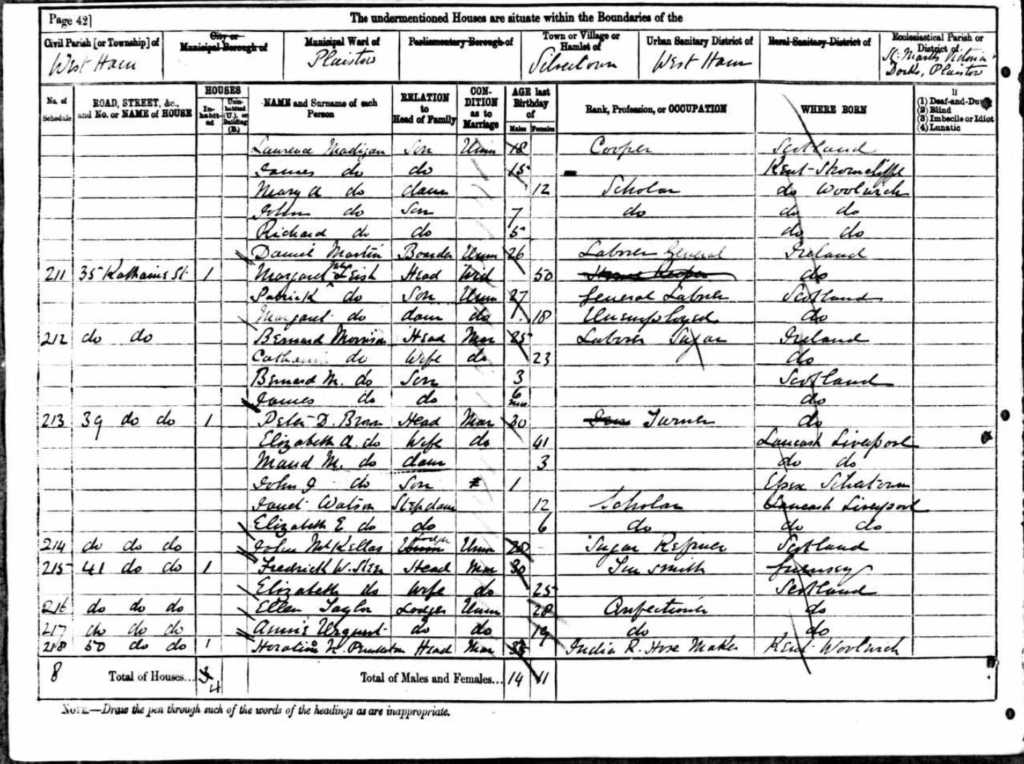 Page 42] The undermentioned Houses are situate within the Boundaries of the
Civil Parish [or Township] of City or Municipal Borough of Municipal Ward of Parliamentary Borough of Town or Village or Hamlet of Urban Sanitary District of Rural Sanitary District of Ecclesiastical Parish or District of
West Ham Plaistow Silvertown West Ham St. Marks Victoria Docks, Plaistow
No. of Schedule ROAD, STREET, &c., and No. or NAME of HOUSE HOUSES Inhabited Uninhabited (U.), or Building (B.) NAME and Surname of each Person RELATION to Head of Family CONDITION as to Marriage AGE last Birthday of Males Females Rank, Profession, or OCCUPATION WHERE BORN If (1) Deaf-and-Dumb (2) Blind (3) Imbecile or Idiot (4) Lunatic
Laurence Madigan Son Unm 18 Cooper Scotland
James do do 15 Kent
Mary A do daur 12 Scholar do Woolwich
John do Son 7 do do do
Richard do do 5 do do
Daniel Martin Boarder Unm 26 Laborer General Ireland
211 35 Katharine St 1 Margaret Head Wid 50 do
Patrick do Son Unm 27 General Laborer Scotland
Margaret do daur do 18 Unemployed do
212 do do Bernard Head Mar 25 Laborer Sugar Ireland
do Wife do 23 do
Bernard M. do Son 3 Scotland
James do do 6 do
213 39 do do 1 Peter D. Brown Head Mar 30 Turner do
Elizabeth A. do Wife do 41 Lancash Liverpool
Maud M. do daur 3 do do
John J do Son 1 Essex
Janet Watson Stepdaur 12 Scholar Lancash Liverpool
Elizabeth E do do 6 do do do
214 do do do John McKellar Lodger Unm Sugar Refiner Scotland
215 41 do do 1 Fredrick W. Head Mar 30 Tin Smith Guernsey
Elizabeth do Wife do 25 Scotland
216 do do do Ellen Taylor Lodger Unm 28 Confectioner do
217 do do do Annie do do 19 do do
218 50 do do 1 Horatio Head Mar India R. Hose Maker Kent Woolwich
8 Total of Houses... 4 Total of Males and Females... 14 11
NOTE.—Draw the pen through such of the words of the headings as are inappropriate.